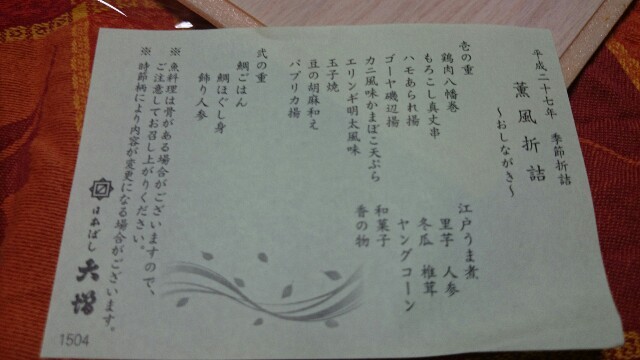 平成二十七年 季節折詰
薫風折詰
～おしながき～
壱の重
鶏肉八幡巻
もろこし真丈串
ハモあられ揚
ゴーヤ磯辺揚
カニ風味かまぼこ天ぷら
エリンギ明太風味
玉子焼
豆の胡麻和え
パプリカ揚
江戸うま煮
里芋 人参
冬瓜 椎茸
ヤングコーン
和菓子
香の物
弐の重
鯛ごはん
鯛ほぐし身
飾り人参
※魚料理は骨がある場合がございますので、
ご注意してお召し上がりください。
※時節柄により内容が変更になる場合がございます。
日本ばし 大増
1504